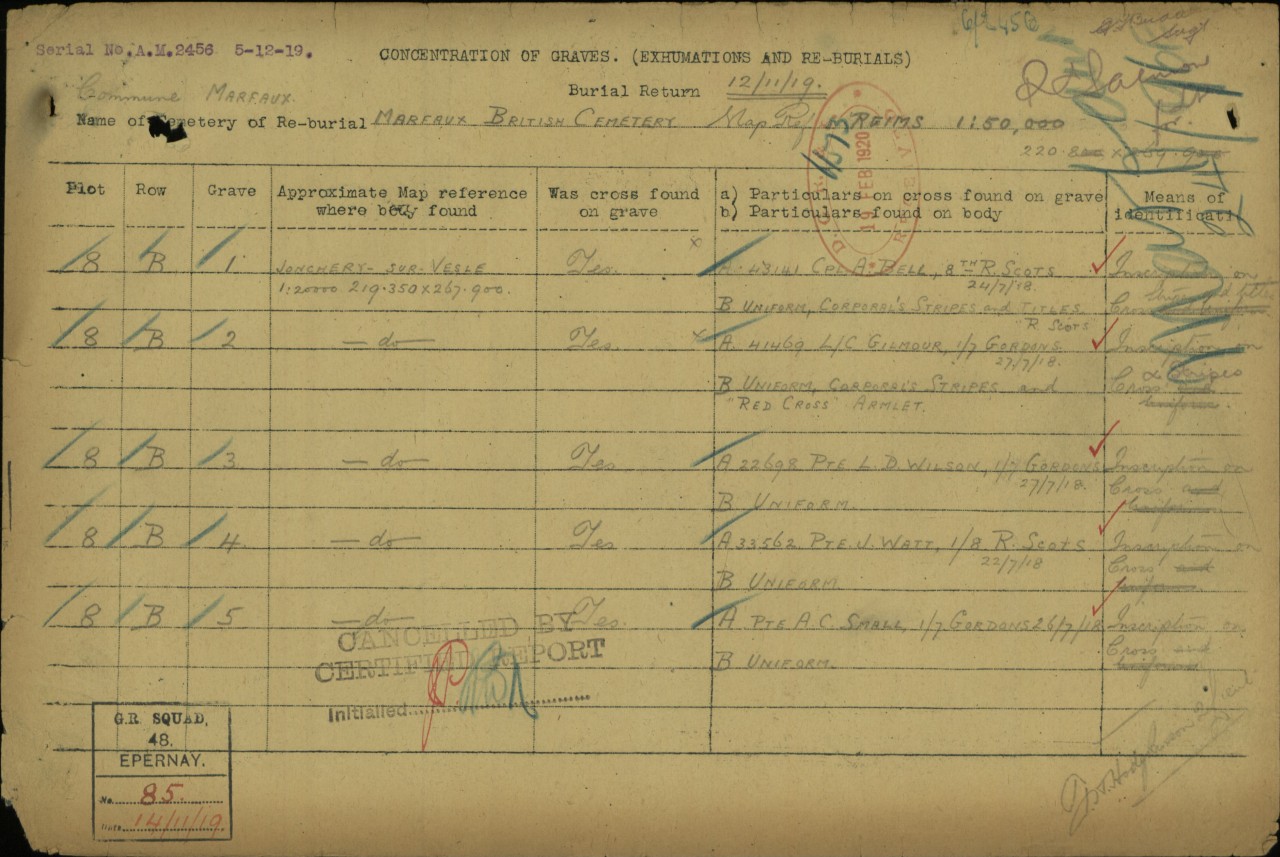 6/2456
Serial No. A.M.2456 5-12-19.
CONCENTRATION OF GRAVES. (EXHUMATIONS AND RE-BURIALS)
Commune MARFAUX.
Burial Return 12/11/19.
Name of Cemetery of Re-burial MARFAUX BRITISH CEMETERY Map Ref REIMS 1:50,000
19 FEB 1920
Plot Row Grave Approximate Map reference where body found Was cross found on grave a) Particulars on cross found on grave b) Particulars found on body Means of identificati
8 B 1 JONCHERY-SUR-VESLE Yes. A. 43141 CPL A. BELL, 8TH R. SCOTS Inscription on
24/7/18.
1:20000 219.350 x 267.900.
B UNIFORM, CORPORAL'S STRIPES and TITLES. Cross
R SCOTS
8 B 2 — do — Yes. A. 41469 L/C GILMOUR, 1/7 GORDONS. Inscription on
27/7/18.
B UNIFORM, CORPORAL'S STRIPES and Cross & Stripes
"RED CROSS" ARMLET. uniform.
8 B 3 — do — Yes A 22698 PTE L. D. WILSON, 1/7 GORDONS Inscription on
27/7/18.
B UNIFORM. Cross and uniform.
8 B 4 — do — Yes A 33562 PTE J. WATT, 1/8 R. SCOTS Inscription on
22/7/18
B UNIFORM. Cross and uniform.
8 B 5 — do — Yes. A PTE A.C. SMALL, 1/7 GORDONS 26/7/18 Inscription on
B UNIFORM. Cross and uniform
CANCELLED BY
CERTIFIED REPORT
Initialled
G.R. SQUAD,
48.
EPERNAY.
No. 85.
Date 14/11/19